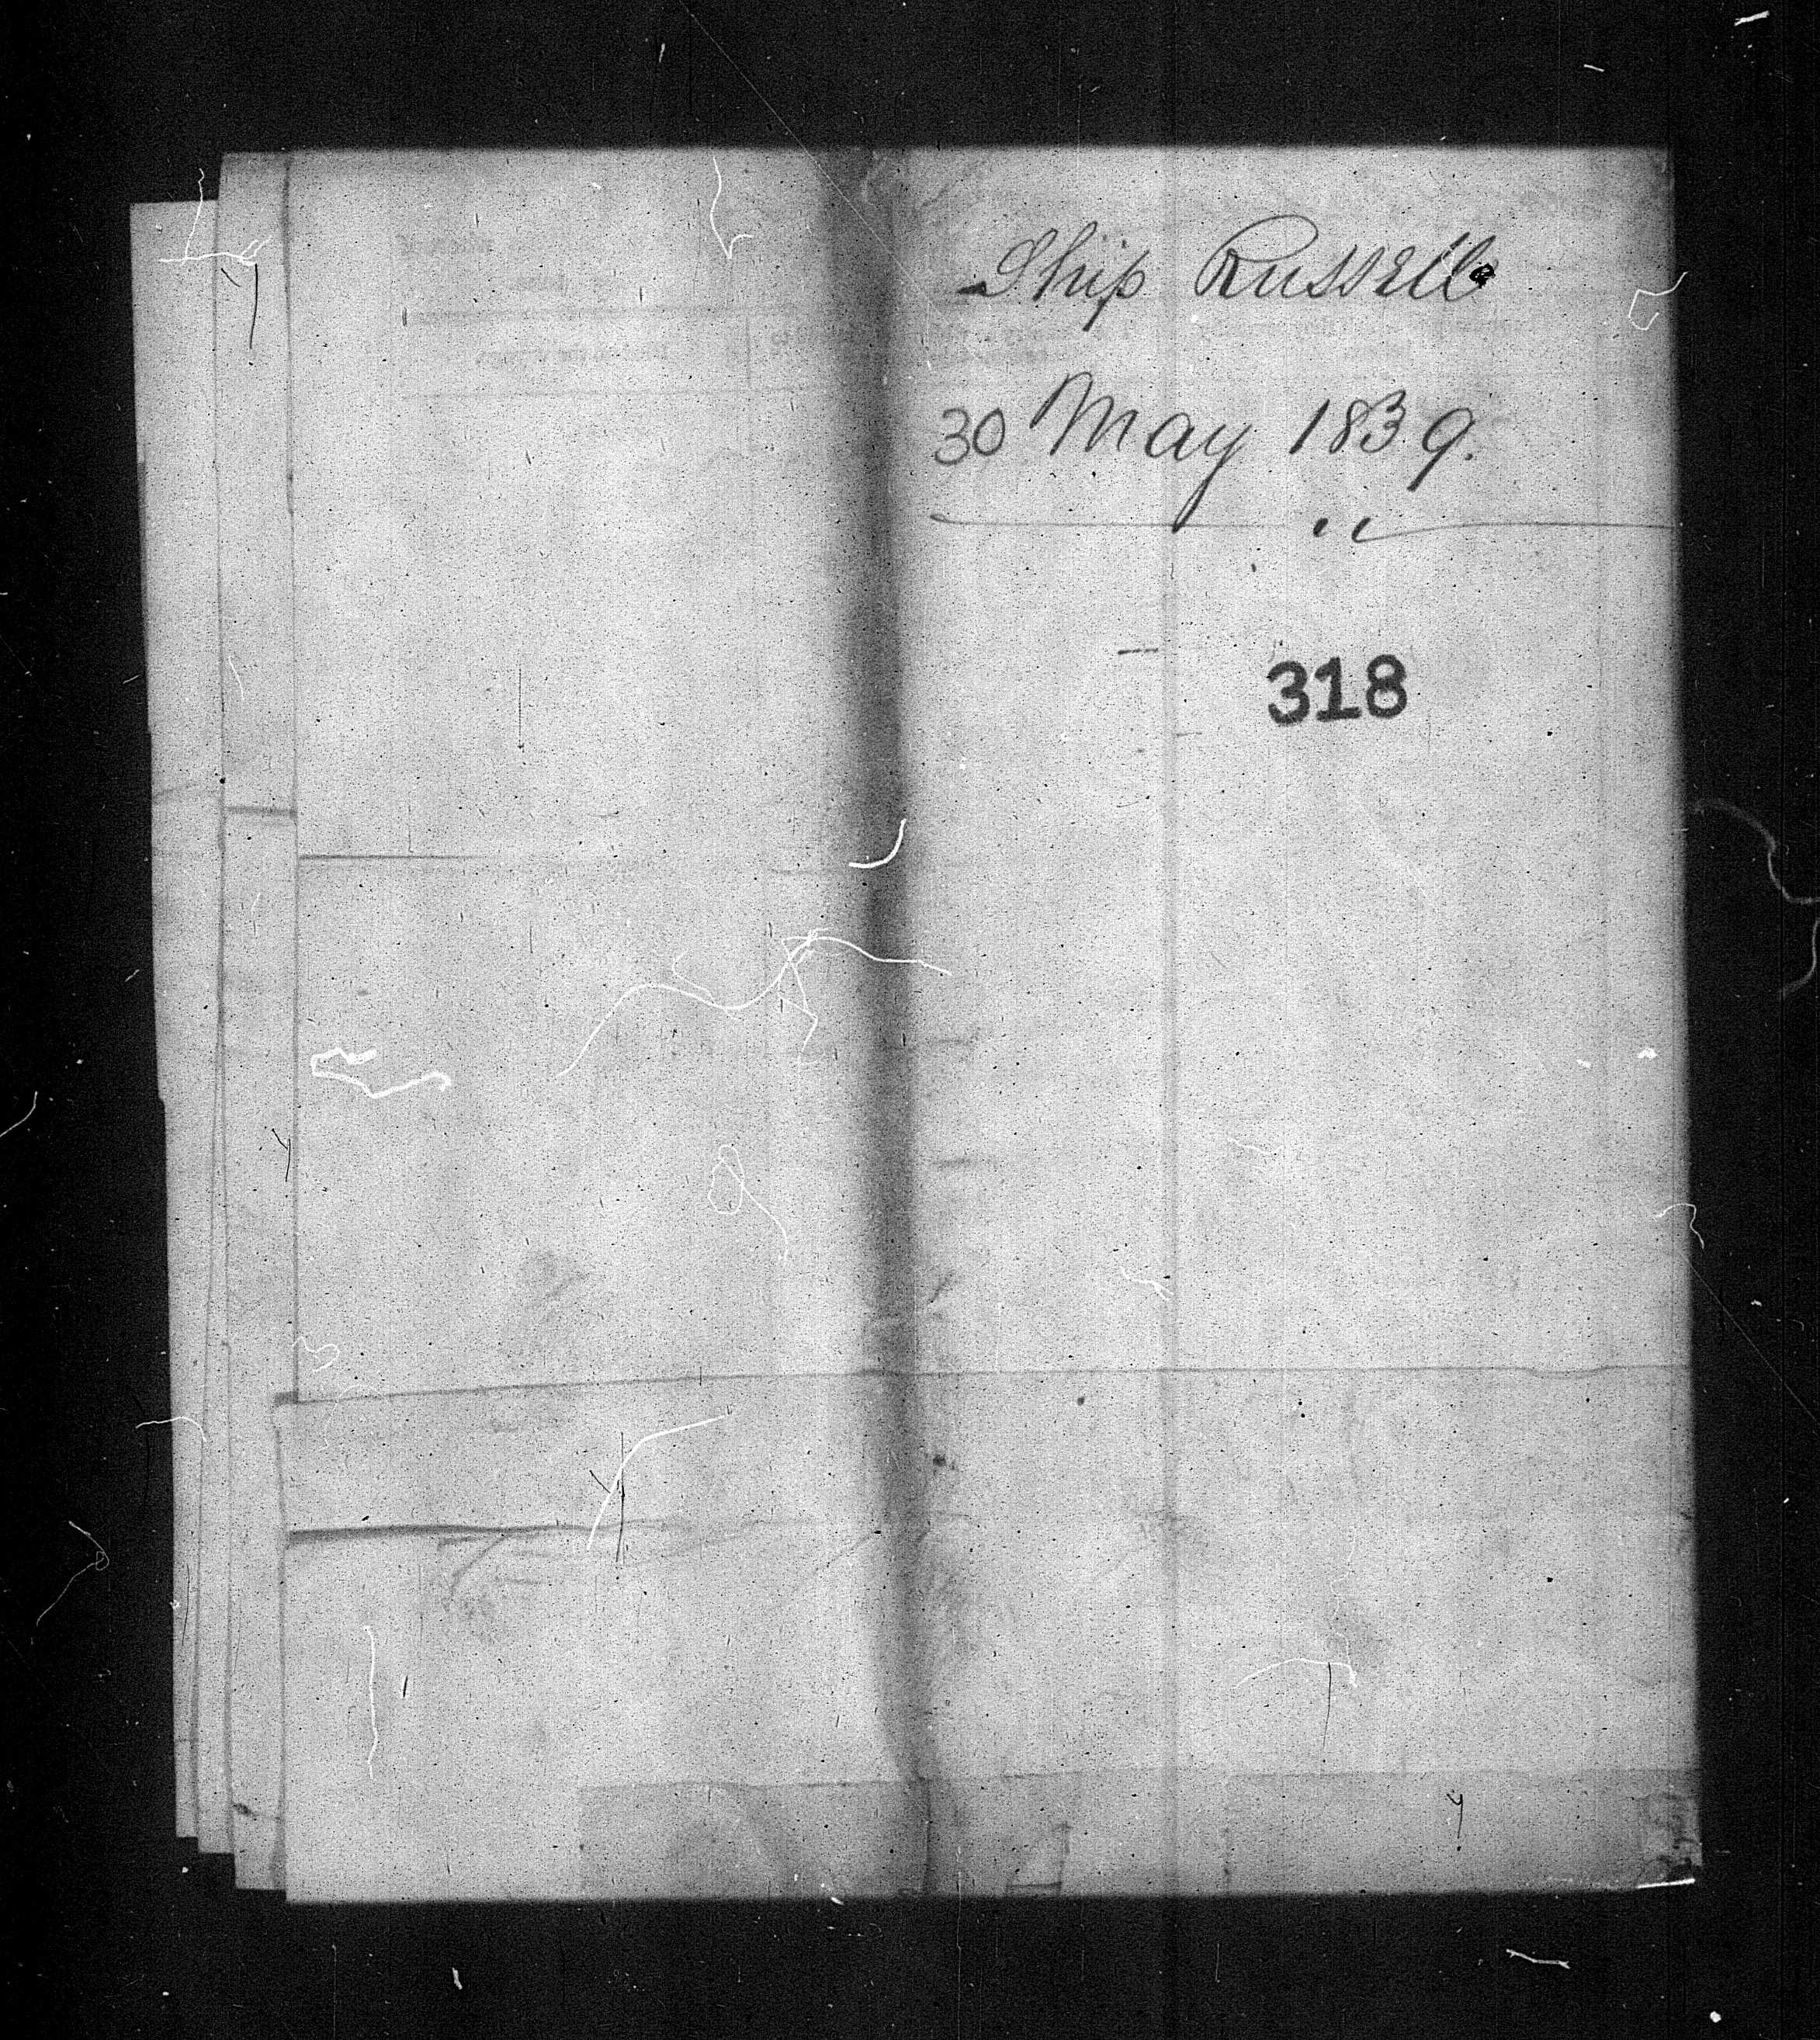 Ship Russell
30 May 1839.
318